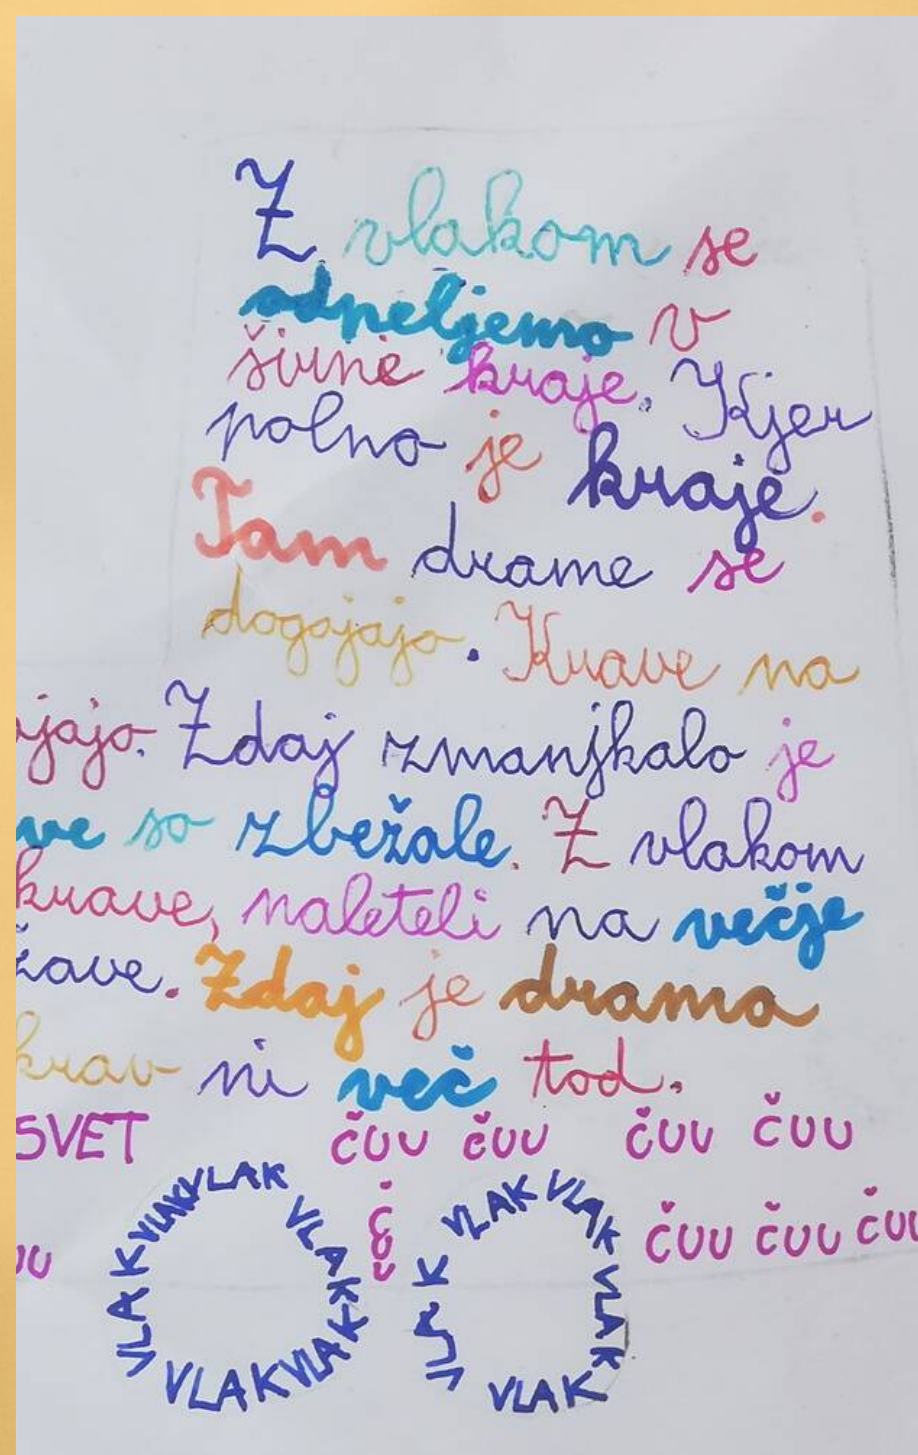 Z vlakom se
odpeljemo v
širne kraje. Kjer
polno je kraje.
Tam drame se
dogajajo. Krave na
jajo. Zdaj zmanjkalo je
ve so zbežale. Z vlakom
krave, naleteli na večje
žave. Zdaj je drama
krav ni več tod.
SVET čuu čuu čuu čuu
uu VLAK VLAK VLAK VLAK VLAK VLAK VLAK čuu VLAK VLAK VLAK VLAK VLAK čuu čuu čuu